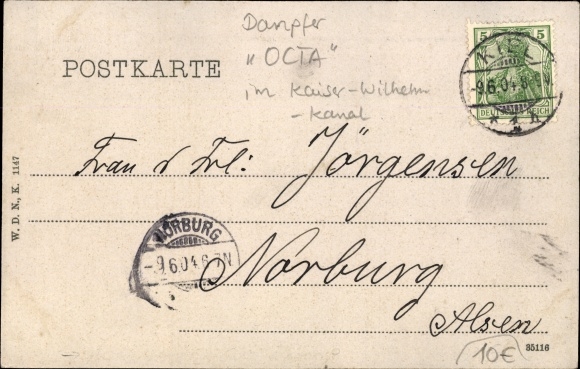 Dampfer
"OCTA"
im Kaiser-Wilhelm
-Kanal
POSTKARTE
5 5
DEUTSCHES REICH
KIEL
-9.6.04.8-
* 1 n.
Frau & Frl: Jörgensen
NORBURG
-9.6.04.6-7N
Norburg
Alsen
W. D. N., K. 1147
35116
10€